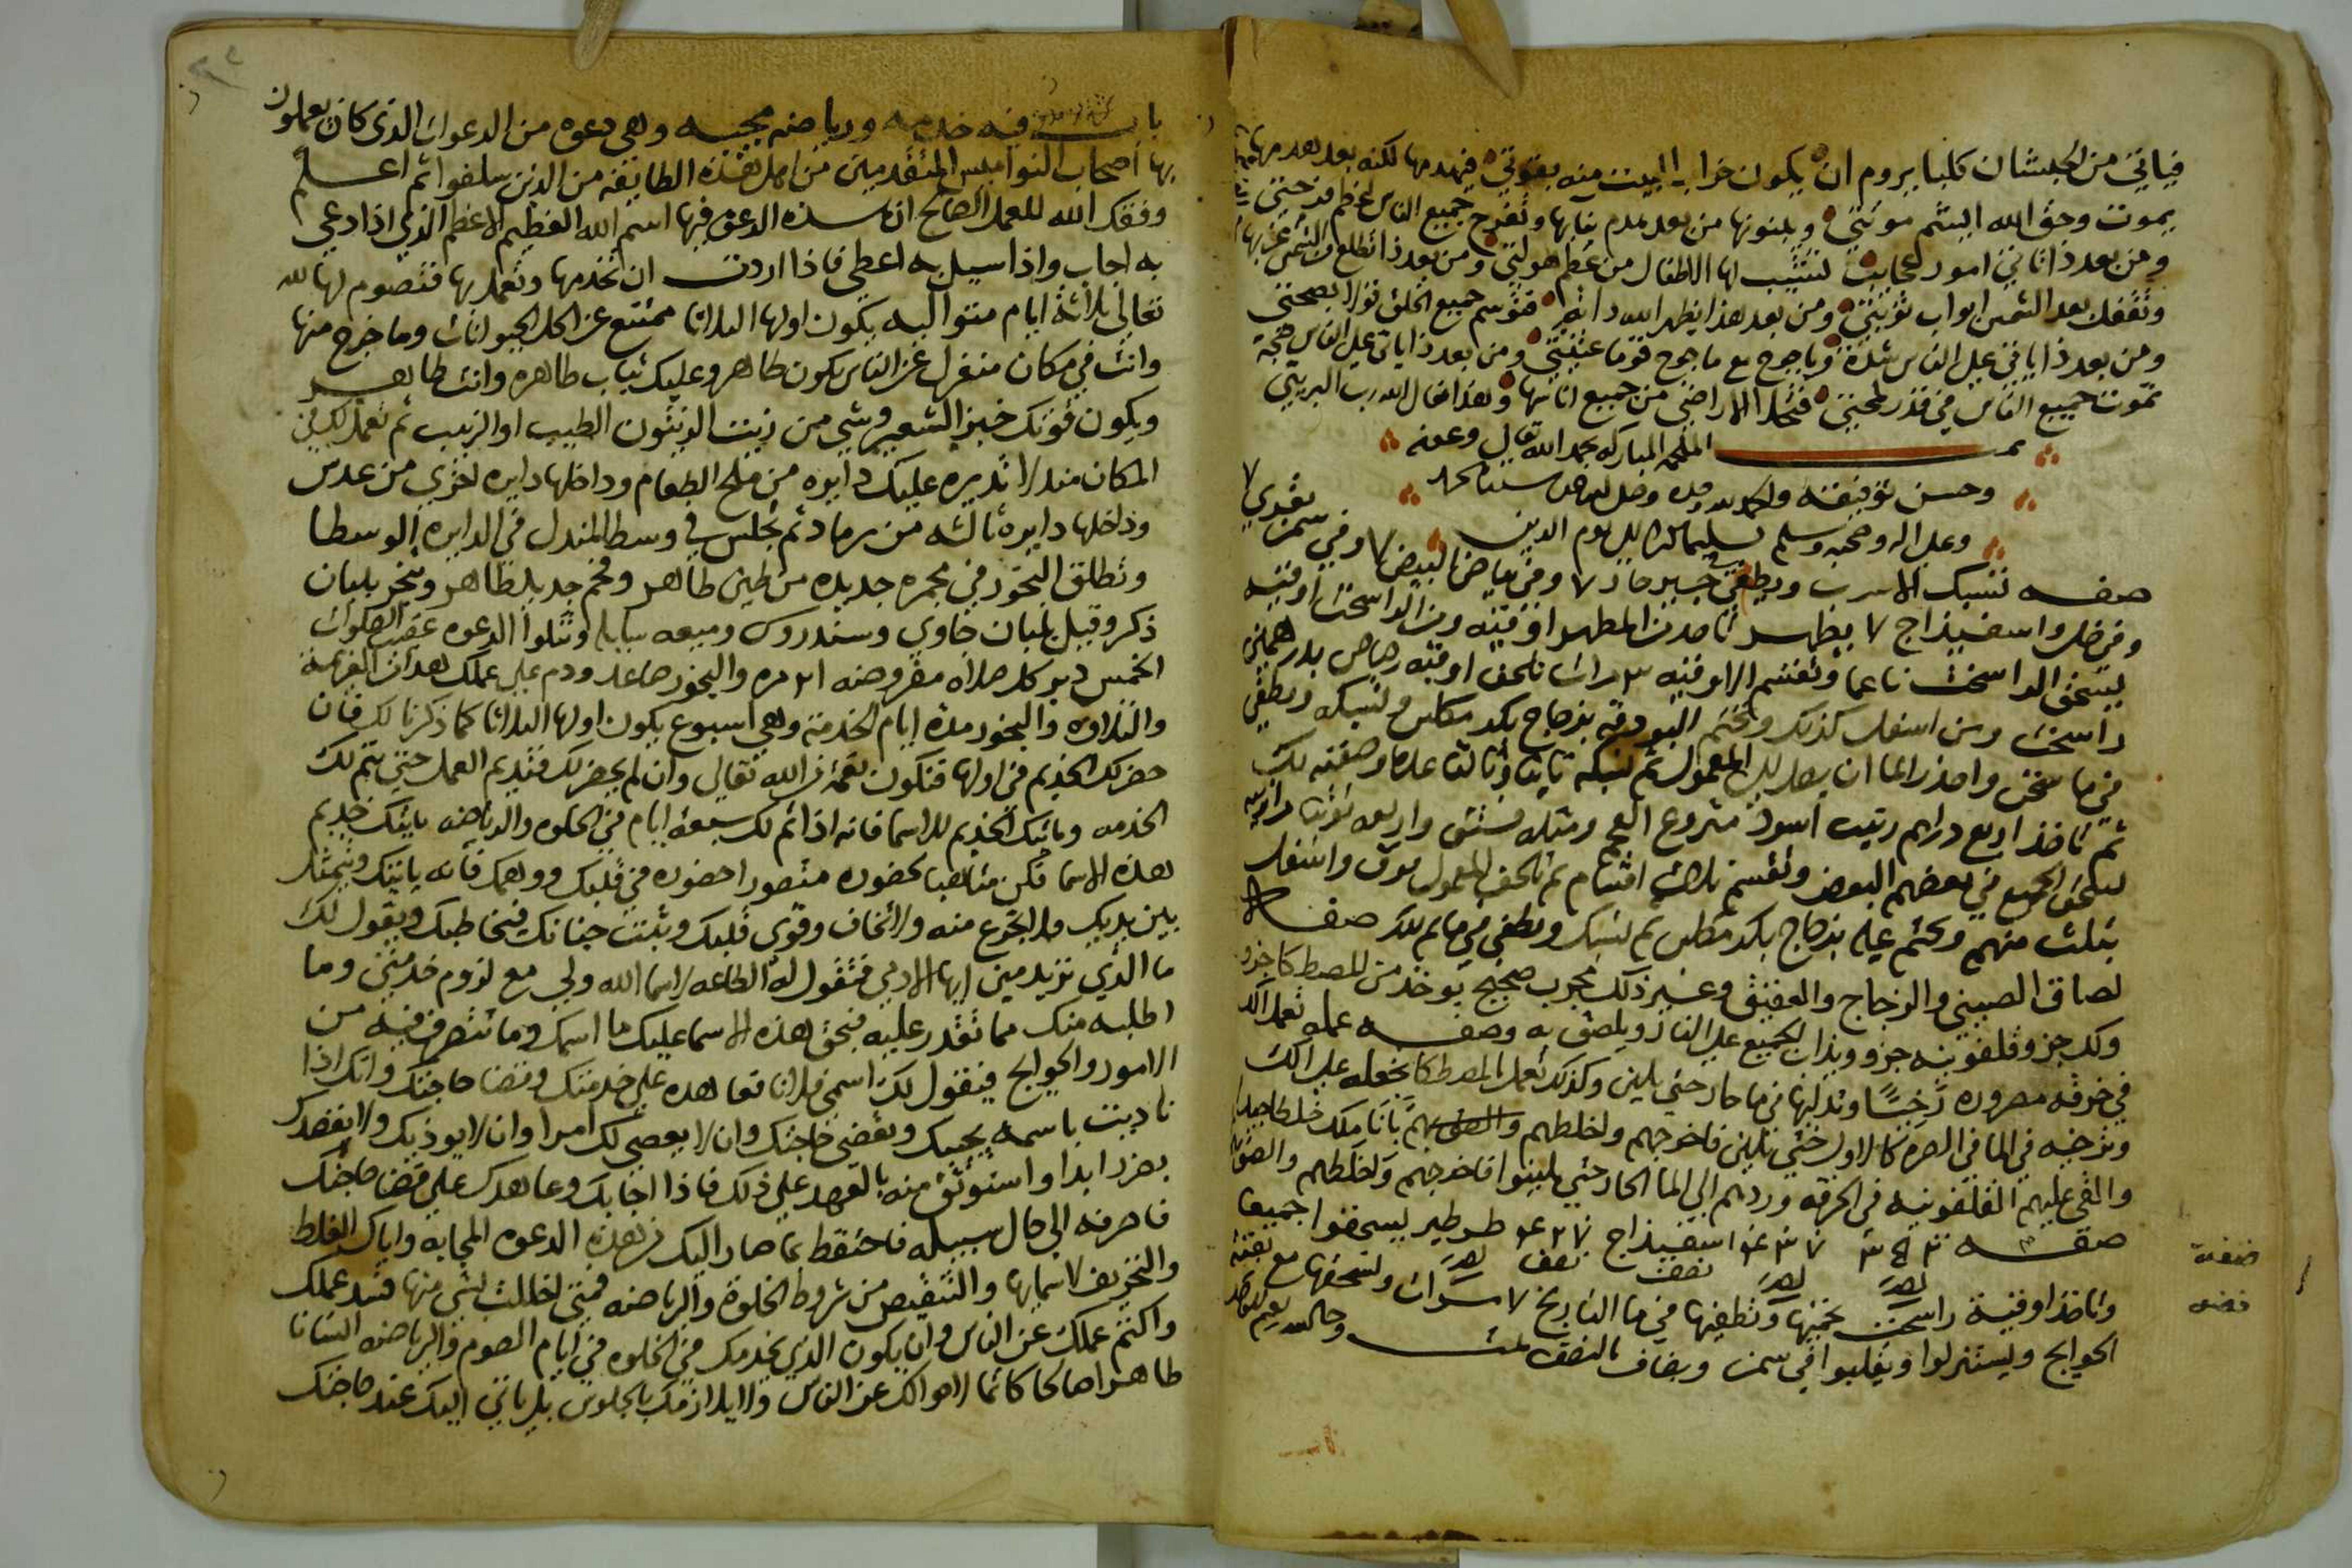 فياتي من الحبشان كلبا يروم ان يكون خراب البيت منه بقوتي فيهدمها لكنه بعد هدمها
يموت وحق الله اليتم موتتي ويبنونها من بعد هدم بنايها وتفرح جميع الناس
ومن بعد ذا تاتي امور عجايب تشيب لها الاطفال من عظم هولتي ومن بعد ذا تطلع الشمس
وتقفل بعد الشمس ابواب توبتي ومن بعد هذا يظهر الله دابة فتوسم جميع الخلق
ومن بعد ذا ياتي على الناس شدة وياجوج مع ماجوج قوما عتيتي ومن بعد ذا ياتي على الناس صيحة
تموت جميع الناس في قدر لمحتي فتخلد الاراضي من جميع اناسها وهذا مقال الله رب البريتي
تمت الملحمه المباركه بحمد الله تعالى وعونه
وحسن توفيقه والحمد لله وحده وصلى الله على سيدنا محمد
وعلى اله وصحبه وسلم تسليما كثيرا الى يوم الدين
صفه تسبك الاسرب ويطفي في جير حار ٧ وفي بياض البيض ٧ وفي سمن بقري ٧
وفي خل واسفيذاج ٧ يطهر تاخد من المطهر اوقيه ومن الراسخت اوقيه
يسحق الراسخت ناعما وتقسم الاوقيه ٣ مرات تلحف اوقيه رصاص بدرهمين
راسخت ومن اسفل كذلك وتختم البودقه بزجاج بكد مكلس وتسبك وتطفي
في ما سخن واحذر الما ان يصل الى المعمول ثم تسبكه ثانيا وثالثا
ثم تاخذ اربع دراهم رتيب اسود منزوع العجم ومثله فستق
يسحق الجميع في بعضهم البعض وتقسم ثلاث اقسام ثم تلحف المعمول فوق واسفل
بثلث منهم وتختم عليه بزجاج بكد مطلس ثم تسبك وتطفي في ما
لصاق الصيني والزجاج والعقيق وغير ذلك مجرب صحيح يوخذ من المصطكا جزو
ولك جزو وقلفونيه جزو ويذاب الجميع على النار ويلصق به وصفه عمله تعمل اللك
في خرقه مصروره رخيسا وتدليها في ما حار حتى يلين وكذلك تعمل المصطكا تجعله على اللك
وترخيه في الما في الصره كالاول حتى تلين فاخرجهم واخلطهم
والقي عليهم القلفونيه في الخرقه وردهم الى الما الحار حتى يلينوا فاخرجهم واخلطهم والصق
صفه اسفيذاج طرطير يسحقوا جميعا
نصف نصف
وتاخذ اوقية راسخت تحميها وتطفيها في ما النارنج ٧ مرات وتسحقها مع بقية
الحوايج ويستنزلوا ويقلبوا في سمن ويضاف بالنصف
صفة
باب فيه خدمه ورياضه مجيبه وهي دعوه من الدعوات الذي كان يعملون
بها اصحاب النواميس المتقدمين من اهل هذه الطايفه من الذين سلفوا ثم اعلم
وفقك الله للعمل الصالح ان هذه الدعوه فيها اسم الله العظيم الاعظم الذي اذا دعي
به اجاب واذا سيل به اعطي فاذا اردت ان تخدمها وتعمل بها فتصوم لها لله
تعالى ثلاثة ايام متواليه يكون اولها الثلاثا ممتنع عن اكل الحيوانات وما خرج منها
وانت في مكان منعزل عن الناس يكون طاهر وعليك ثياب طاهره وانت طاهر
ويكون قوتك خبز الشعير وشي من زيت الزيتون الطيب او الزبيب ثم تعمل لك في
المكان مندلا تديره عليك دايره من ملح الطعام وداخلها دايره اخري من عدس
وداخلها دايره ثالثه من رماد ثم تجلس في وسط المندل في الدايره الوسطا
وتطلق البخور في مجمره جديده من طين طاهر وفحم جديد طاهر وتبخر بلبان
ذكر وقيل بلبان جاوي وسندروس وميعه سايله وتتلوا الدعوه عقيب الصلوات
الخمس دبر كل صلاه مفروضه ٢١ مره والبخور صاعد ودم على عملك بهذا العزيمة
والتلاوه والبخور مدة ايام الخدمة وهي اسبوع يكون اولها الثلاثا كما ذكرنا لك فان
حضر لك الخديم في اولها فتكون نعمة من الله تعالى وان لم يحضر لك فتديم العمل حتى يتم لك
الخدمه وياتيك الخديم للاسما فانه اذا تم لك سبعة ايام في الخلوه والرياضه ياتيك خديم
هذه الاسما فكن متاهبا لحضوره متصورا حضوره في قلبك ووهمك فانه ياتيك ويتمثل
بين يديك ولا تجزع منه ولا تخاف وقوي قلبك وثبت جنانك فيخاطبك ويقول لك
ما الذي تريد مني ايها الادمي فتقول له الطاعه لاسما الله ولي مع لزوم خدمتي وما
اطلبه منك مما تقدر عليه فبحق هذه الاسما عليك ما اسمك وما تتصرف فيه من
الامور والحوايج فيقول لك اسمي فلانا تعاهده على خدمتك وقضا حاجتك وانك اذا
ناديت باسمه يجيبك ويقضي حاجتك وان لا يعصي لك امرا وان لا يوذيك ولا يقصدك
بضرر ابدا واستوثق منه بالعهد على ذلك فاذا اجابك وعاهدك على قضا حاجتك
فاصرفه الى حال سبيله فاحتفظ بما صار اليك من هذه الدعوه المجابه واياك الغلط
والتحريف لاسمايها والتنقيص من شروط الخلوة والرياضه فمتى اخللت بشي منها فسد عملك
واكتم عملك عن الناس وان يكون الذي يخدمك في الخلوه في ايام الصوم والرياضه انسانا
طاهرا صالحا كاتما لاحوالك عن الناس ولا يلازمك بالجلوس بل ياتي اليك عند حاجتك